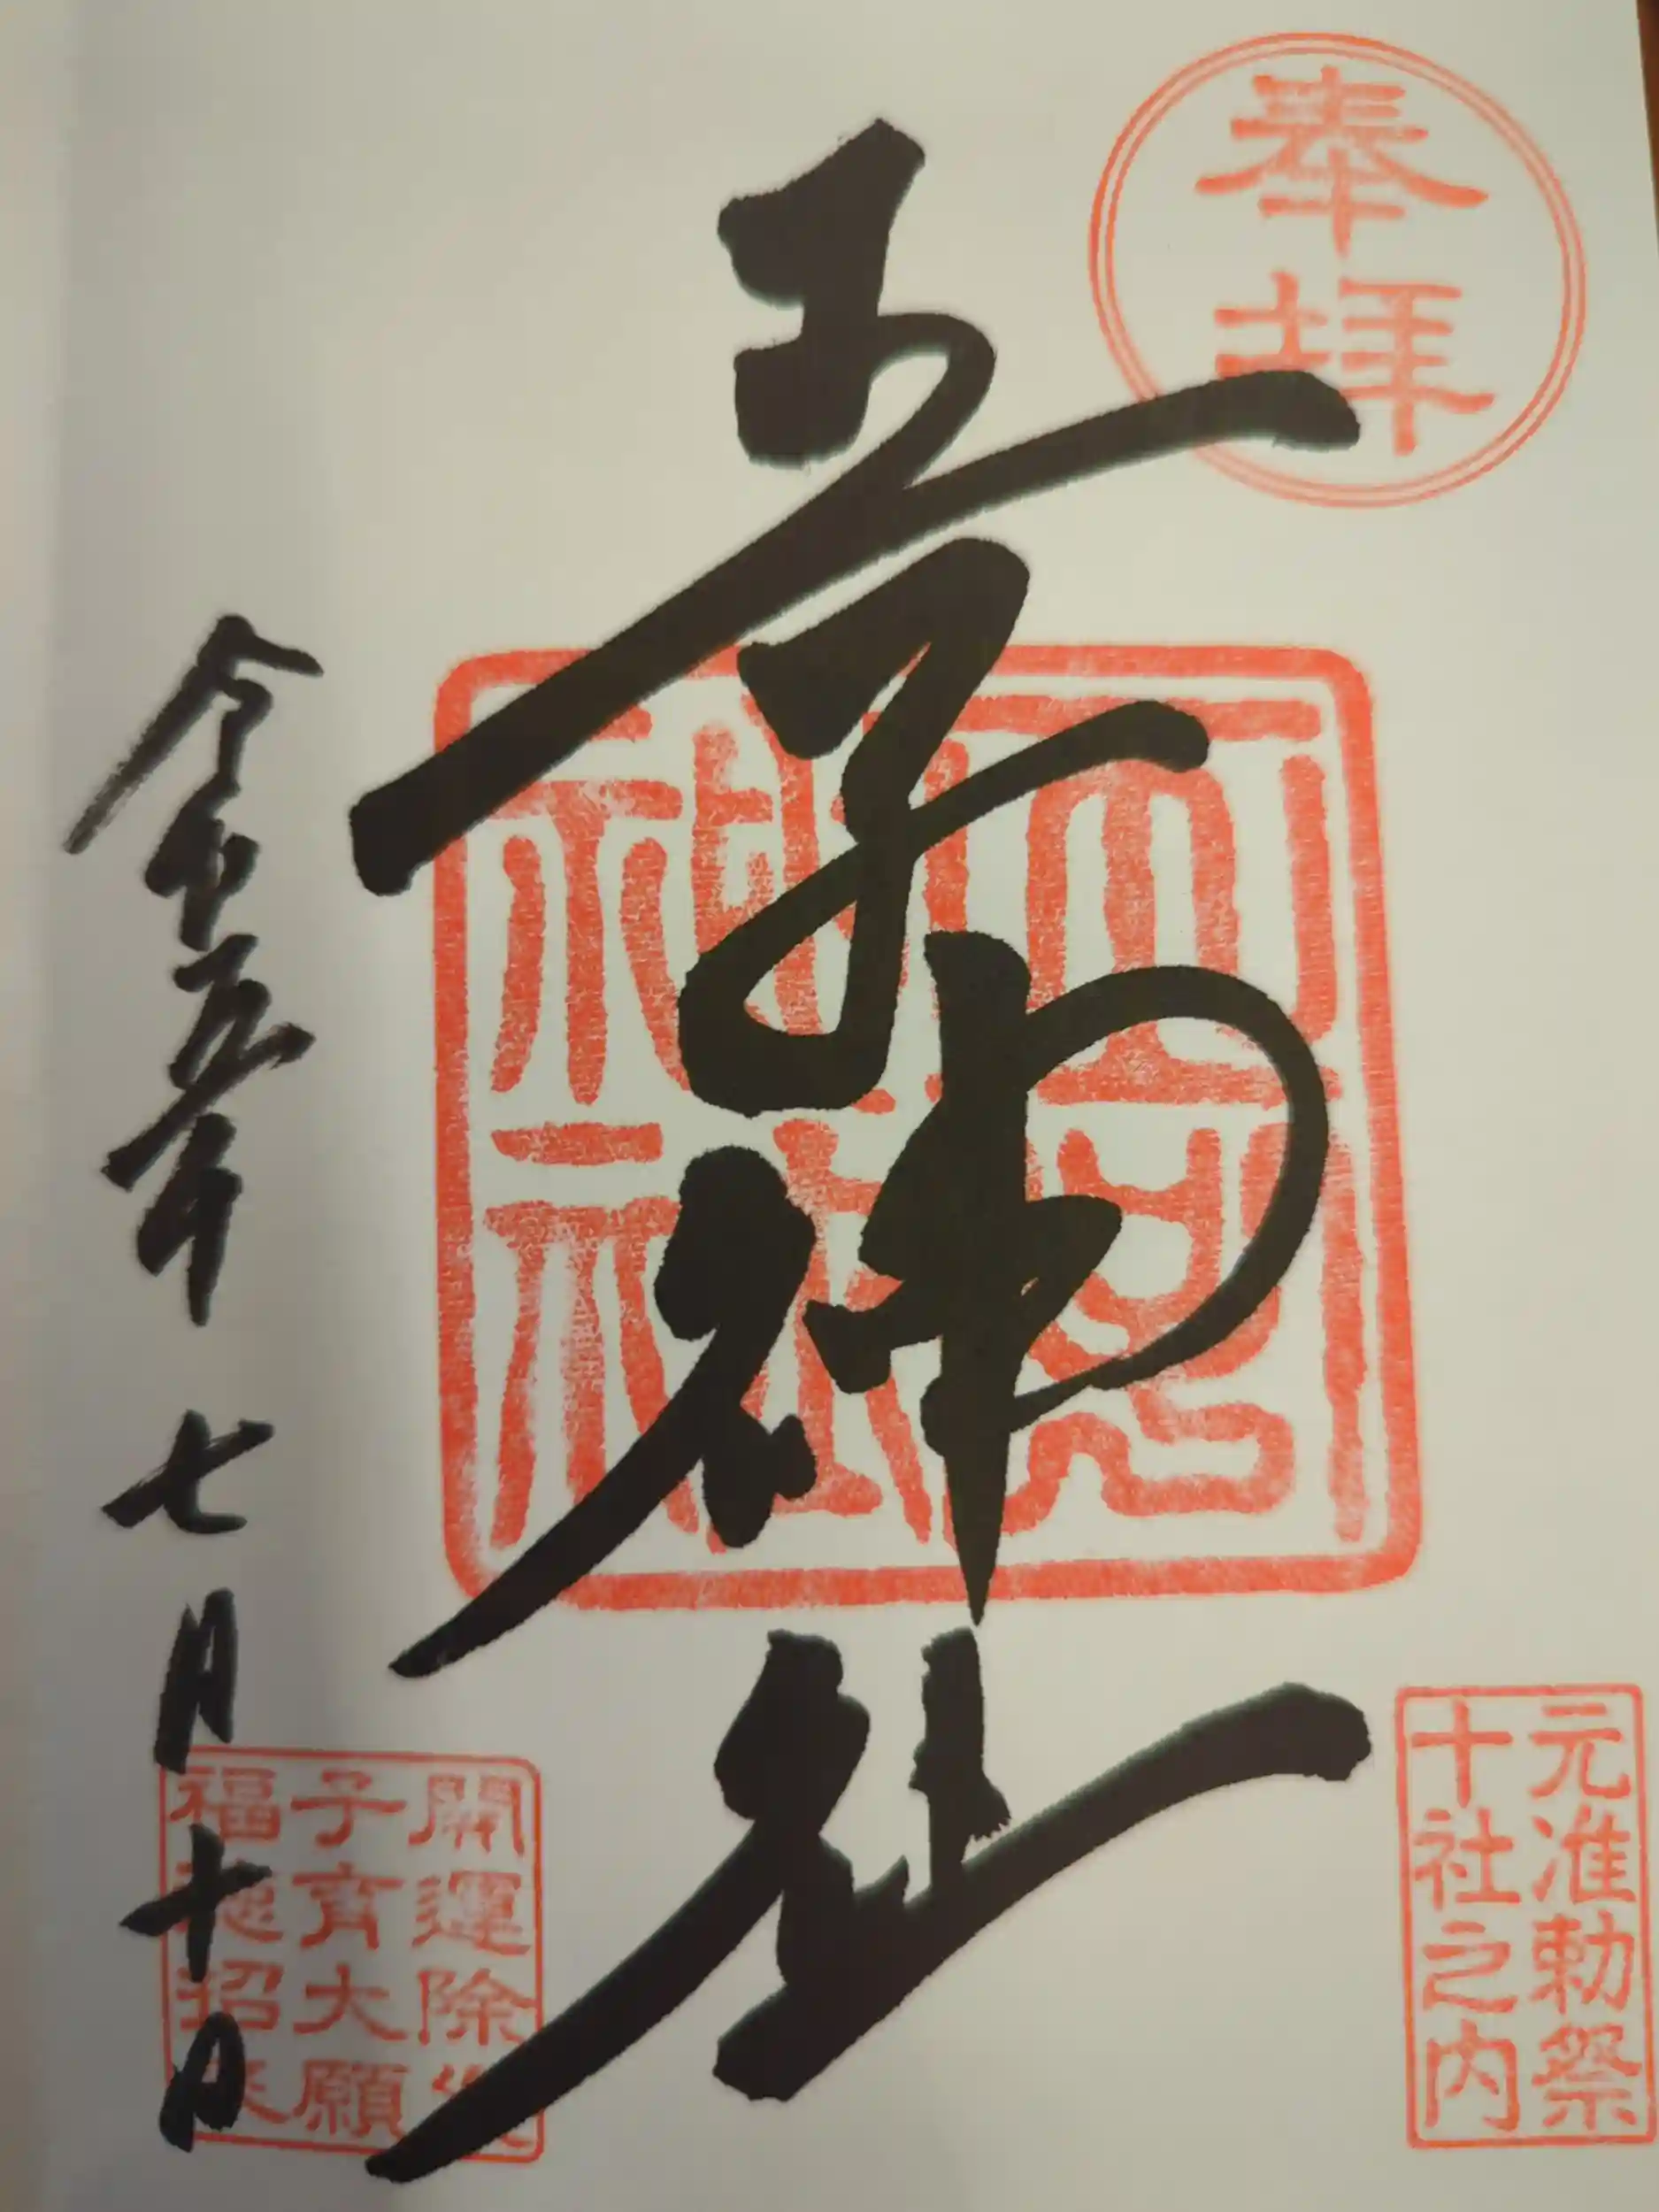 奉拝
王子神社
王子神社
元准勅祭
十社之内
開運除災
子育大願
福徳招来
令和五年七月十日